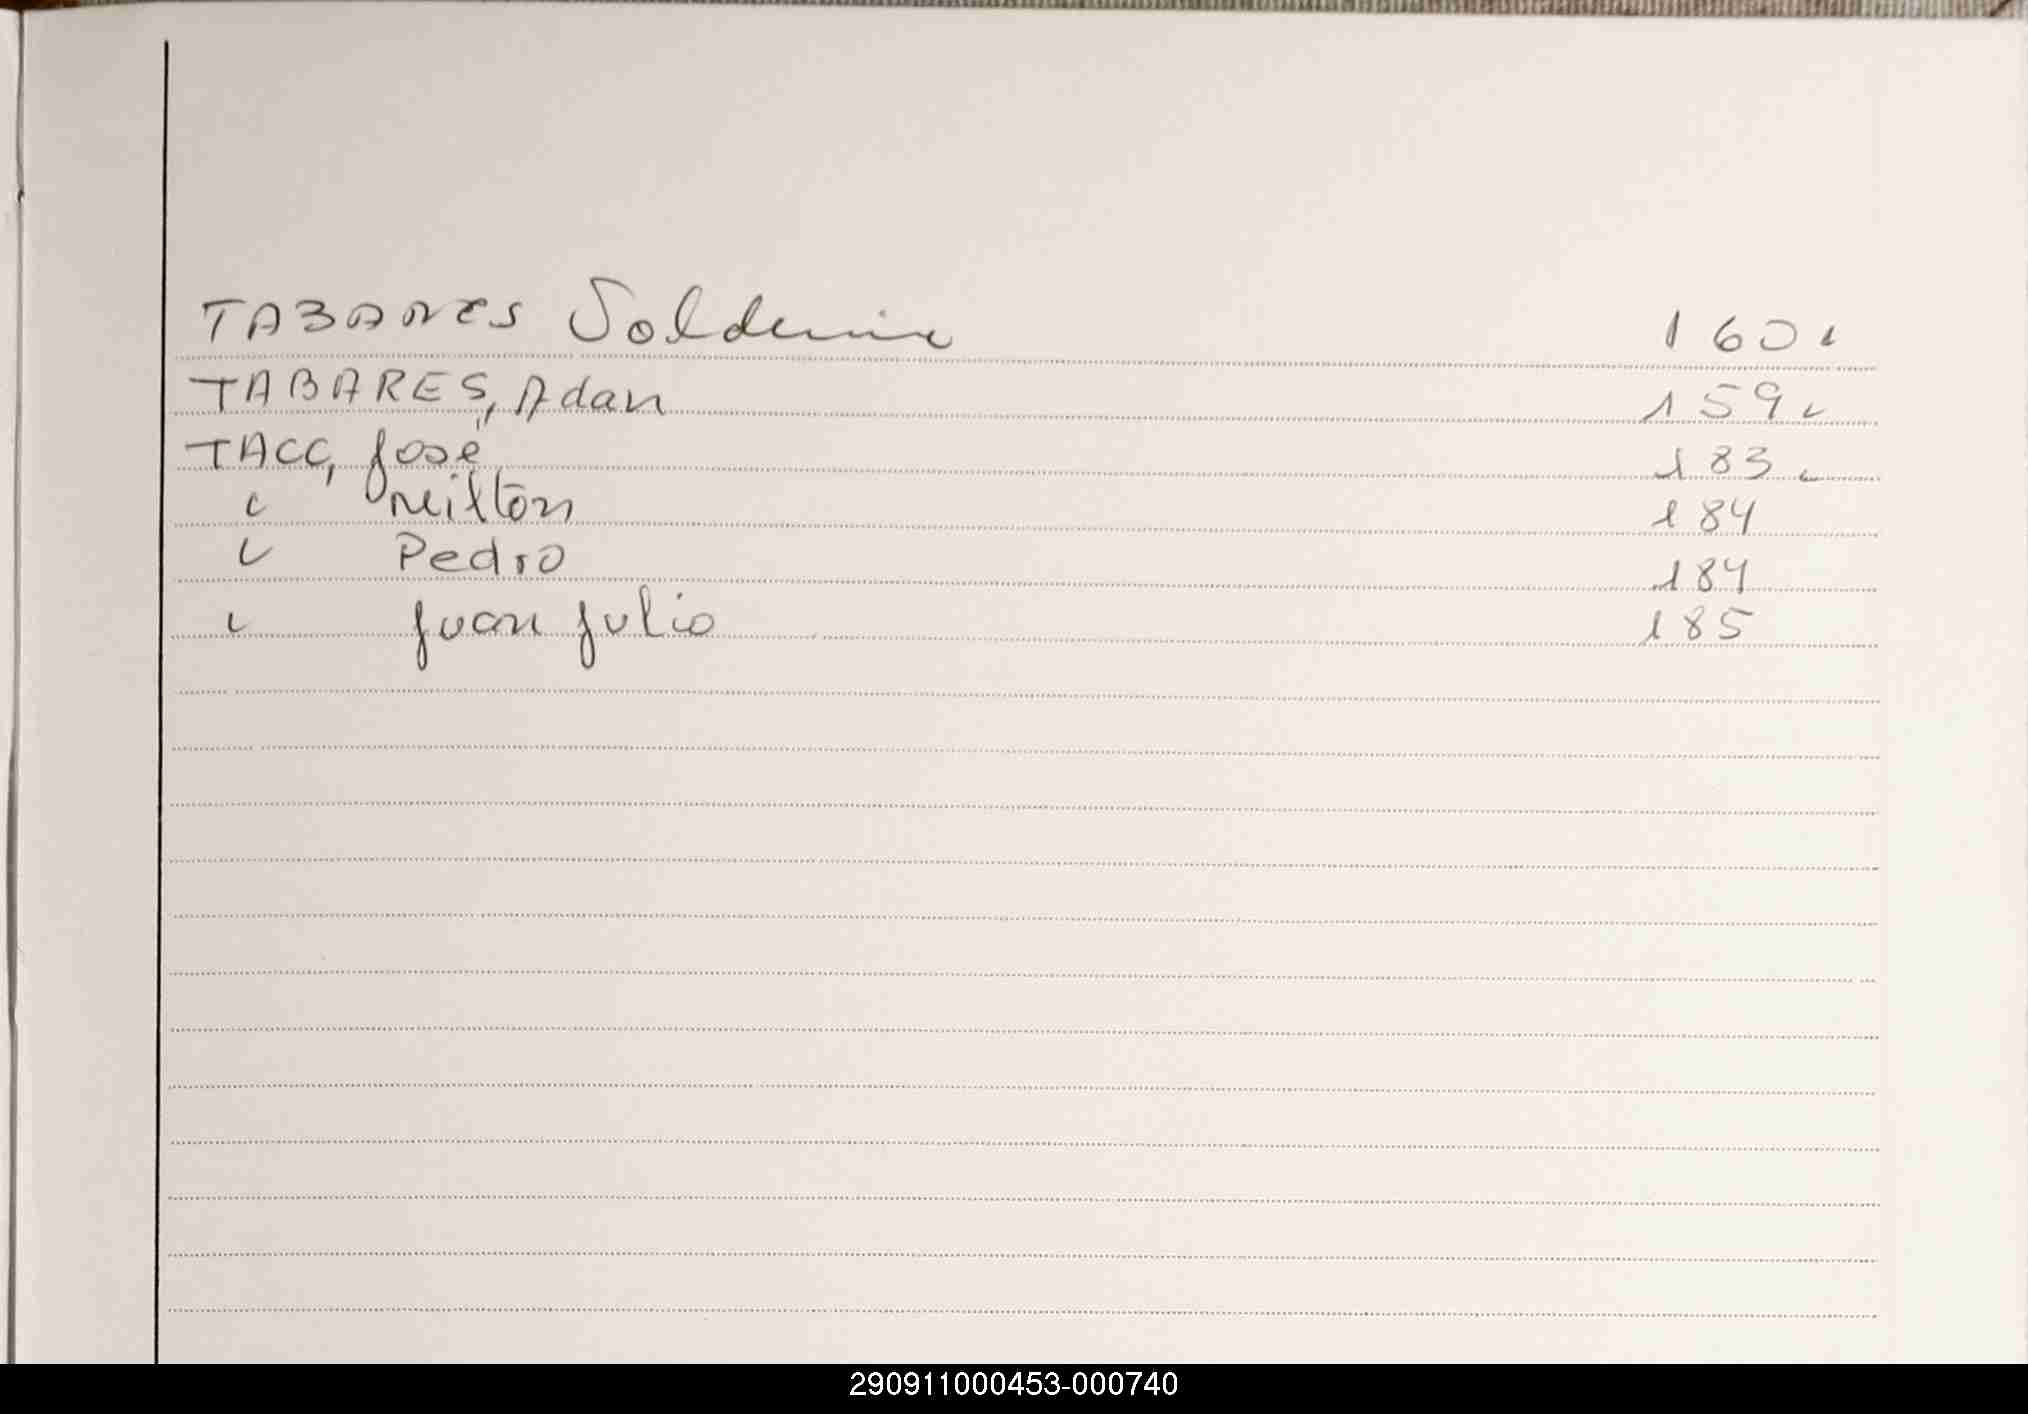 TABARES 160
TABARES, Adan 159
TACC, José 183
" Milton 184
" Pedro 184
" Juan Julio 185
290911000453-000740